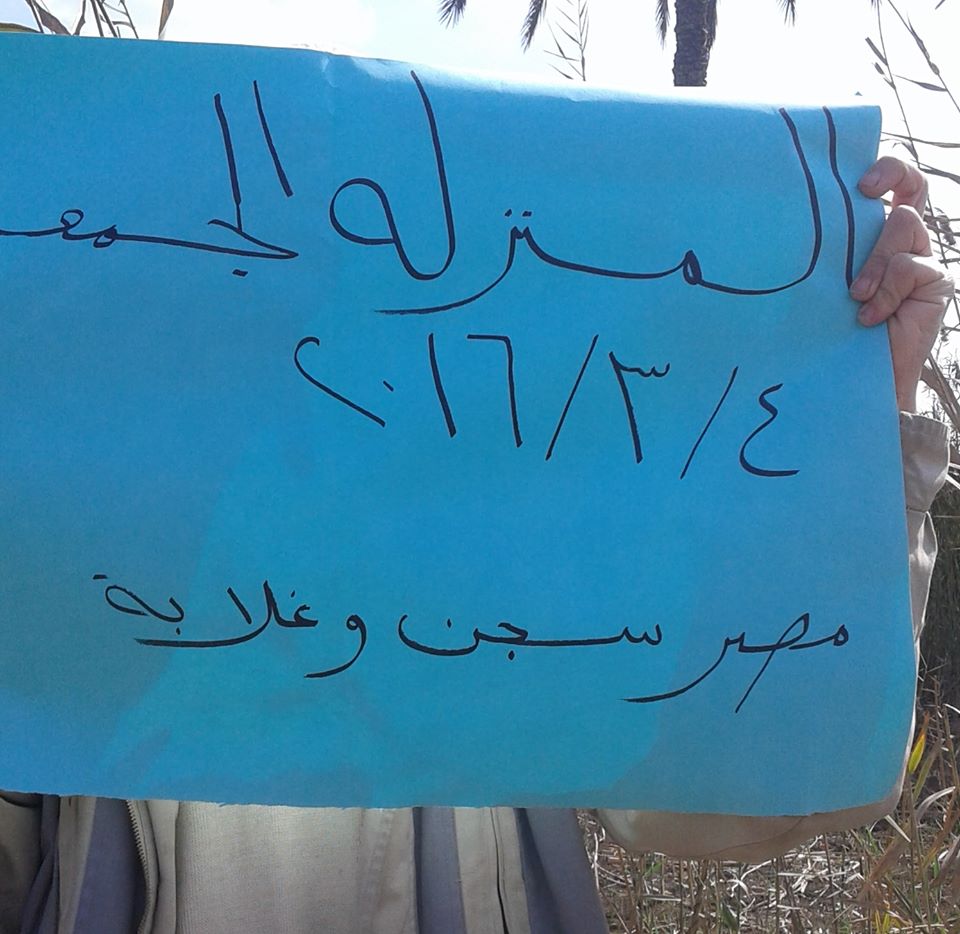 المنزله الجمع
٢٠١٦/٣/٤
مصر سجن وغلابة